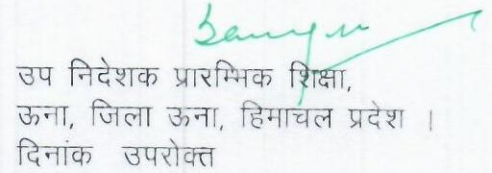 उप निदेशक प्रारम्भिक शिक्षा,
ऊना, जिला ऊना, हिमाचल प्रदेश ।
दिनांक उपरोक्त